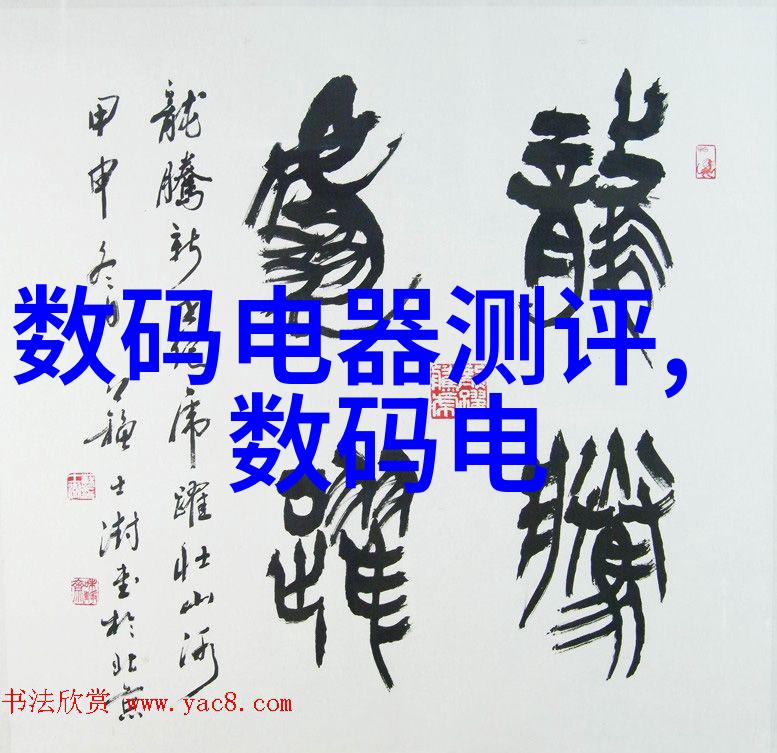 龍騰
虎躍
龍騰新世紀虎躍壮山河
甲申冬月
士澍書於北京
数码电器测评,
数码电
书法欣赏 www.yac8.com